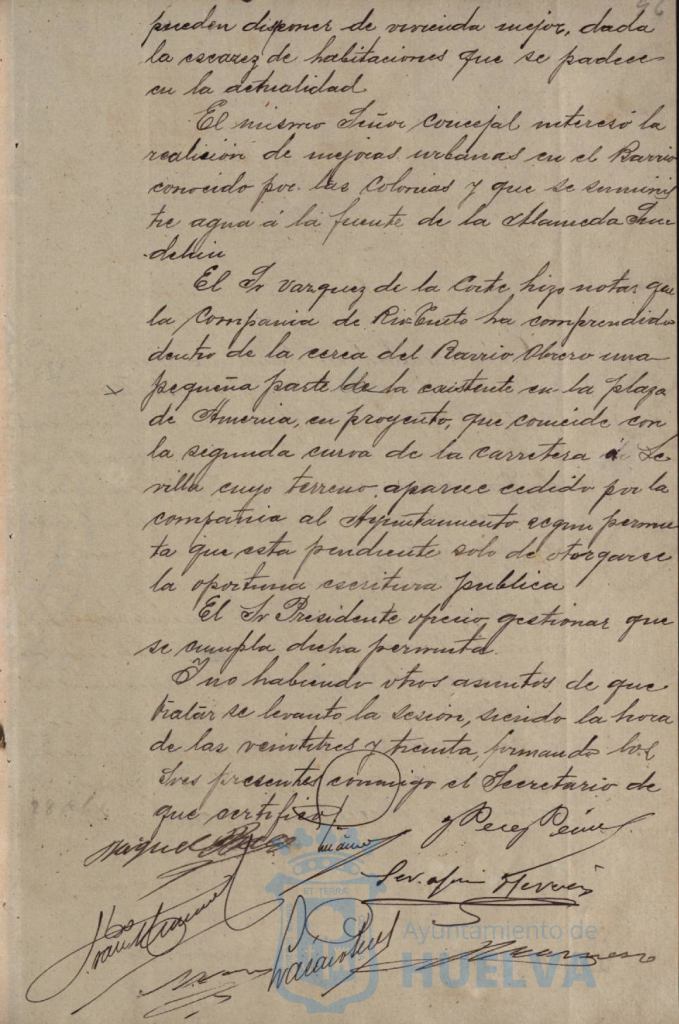 96
pueden disponer de vivienda mejor, dada
la escarez de habitaciones que se padece
en la actualidad
El mismo Señor Concejal interesó la
realisión de mejoras urbanas en el Barrio
conocido por las Colonias y que se suminis
tre agua á la fuente de la Alameda Sun
dehin
El Sr Vazquez de la Corte hizo notar que
la Compania de Rio-Tinto ha comprendido
dentro de la cerca del Barrio Obrero una
pequeña parte de la existente en la plaza
de America, en proyecto, que coincide con
la segunda curva de la carretera á Se
villa cuyo terreno aparece cedido por la
compañia al Ayuntamiento segun permu
ta que esta pendiente solo de otorgarse
la oportuna escritura publica
El Sr Presidente ofrecio gestionar que
se cumpla dicha permuta.
Y no habiendo otros asuntos de que
tratar se levanto la sesión, siendo la hora
de las veintitres y treinta, firmando los
Sres presentes conmigo el Secretario de
que certifico
Miguel
Perez
Ayuntamiento de
HUELVA